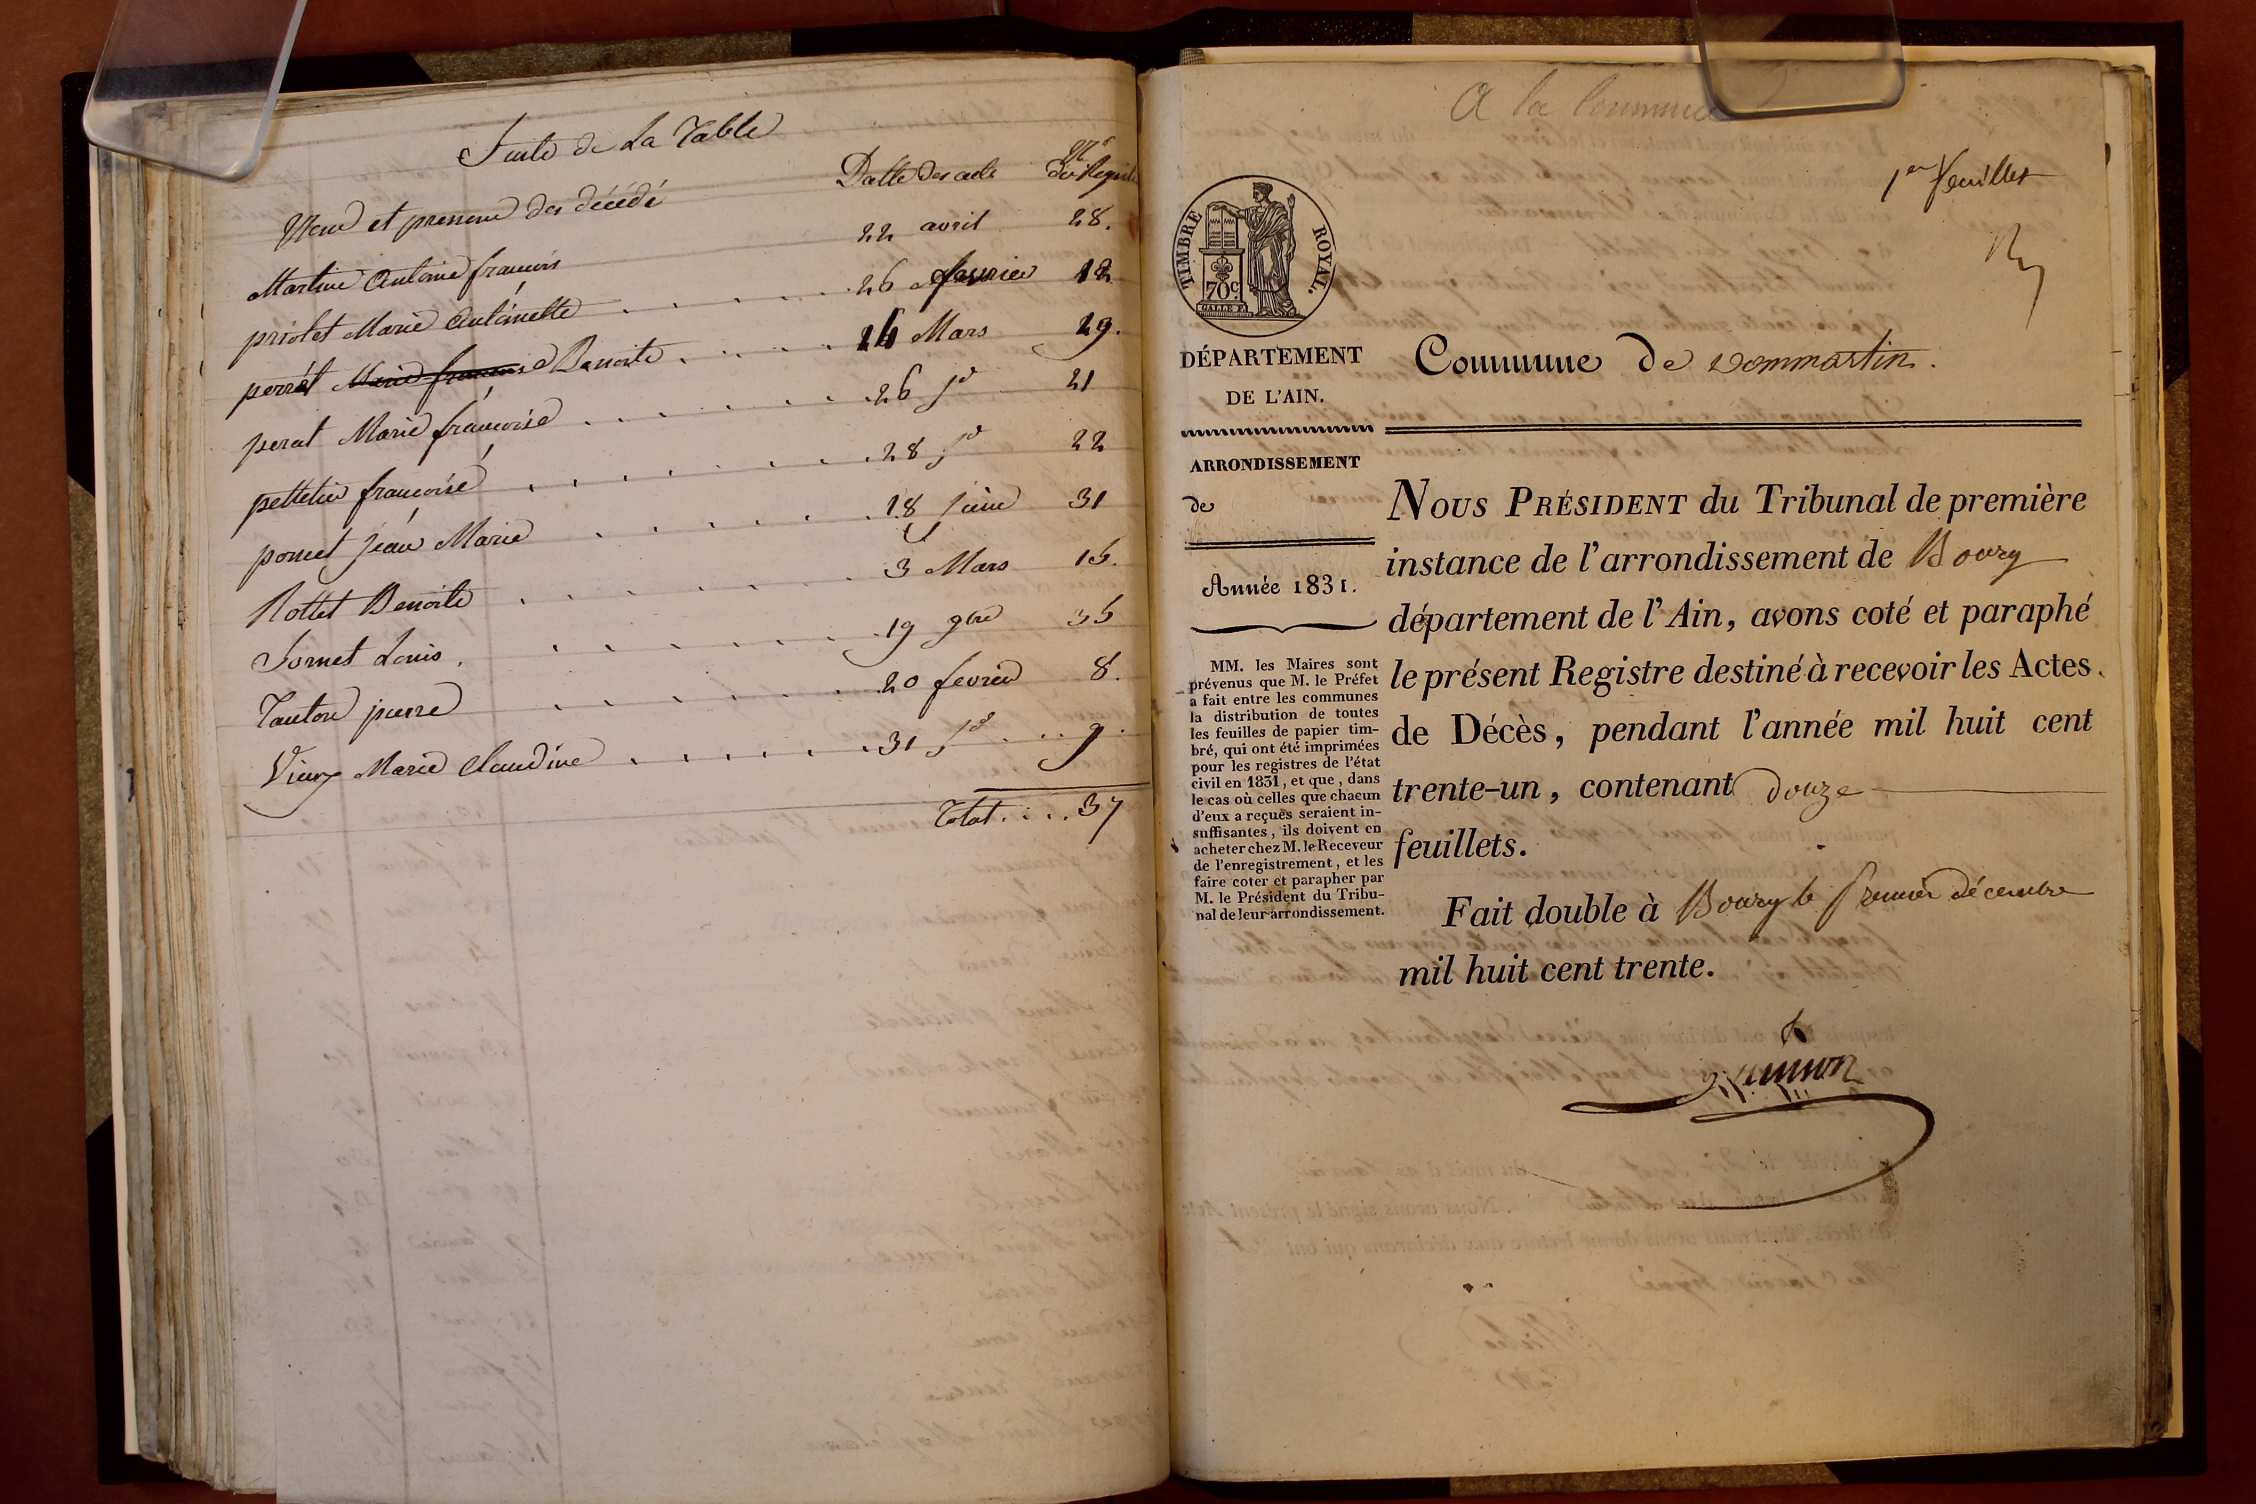 Suite de La Table
Nom et prenom des décédé Datte des acte Nº du Registre
Martin Antoine francois 22 avril 28.
priolet Marie Antoinette 26 fevrier 12
perrat Marie francoise Benoite 26 Mars 29.
perat Marie francoise 26 jd 21
pelletier francoise 28 jd 22
poncet jean Marie 18 juin 31
Rollet Benoite 3 Mars 15.
Sornet Louis 19 9bre 35
Tauton pierre 20 fevrier 8.
Vieux Marie Claudine 31 jd 9.
Total.... 37
A la Commune
1er feuillet
TIMBRE ROYAL.
70c
DÉPARTEMENT
DE L'AIN.
Commune de Dommartin.
ARRONDISSEMENT
de
Année 1831.
MM. les Maires sont
prévenus que M. le Préfet
a fait entre les communes
la distribution de toutes
les feuilles de papier tim-
bré, qui ont été imprimées
pour les registres de l'état
civil en 1831, et que, dans
le cas où celles que chacun
d'eux a reçues seraient in-
suffisantes, ils doivent en
acheter chez M. le Receveur
de l'enregistrement, et les
faire coter et parapher par
M. le Président du Tribu-
nal de leur arrondissement.
NOUS PRÉSIDENT du Tribunal de première
instance de l'arrondissement de Bourg
département de l'Ain, avons coté et paraphé
le présent Registre destiné à recevoir les Actes
de Décès, pendant l'année mil huit cent
trente-un, contenant douze
feuillets.
Fait double à Bourg le premier décembre
mil huit cent trente.